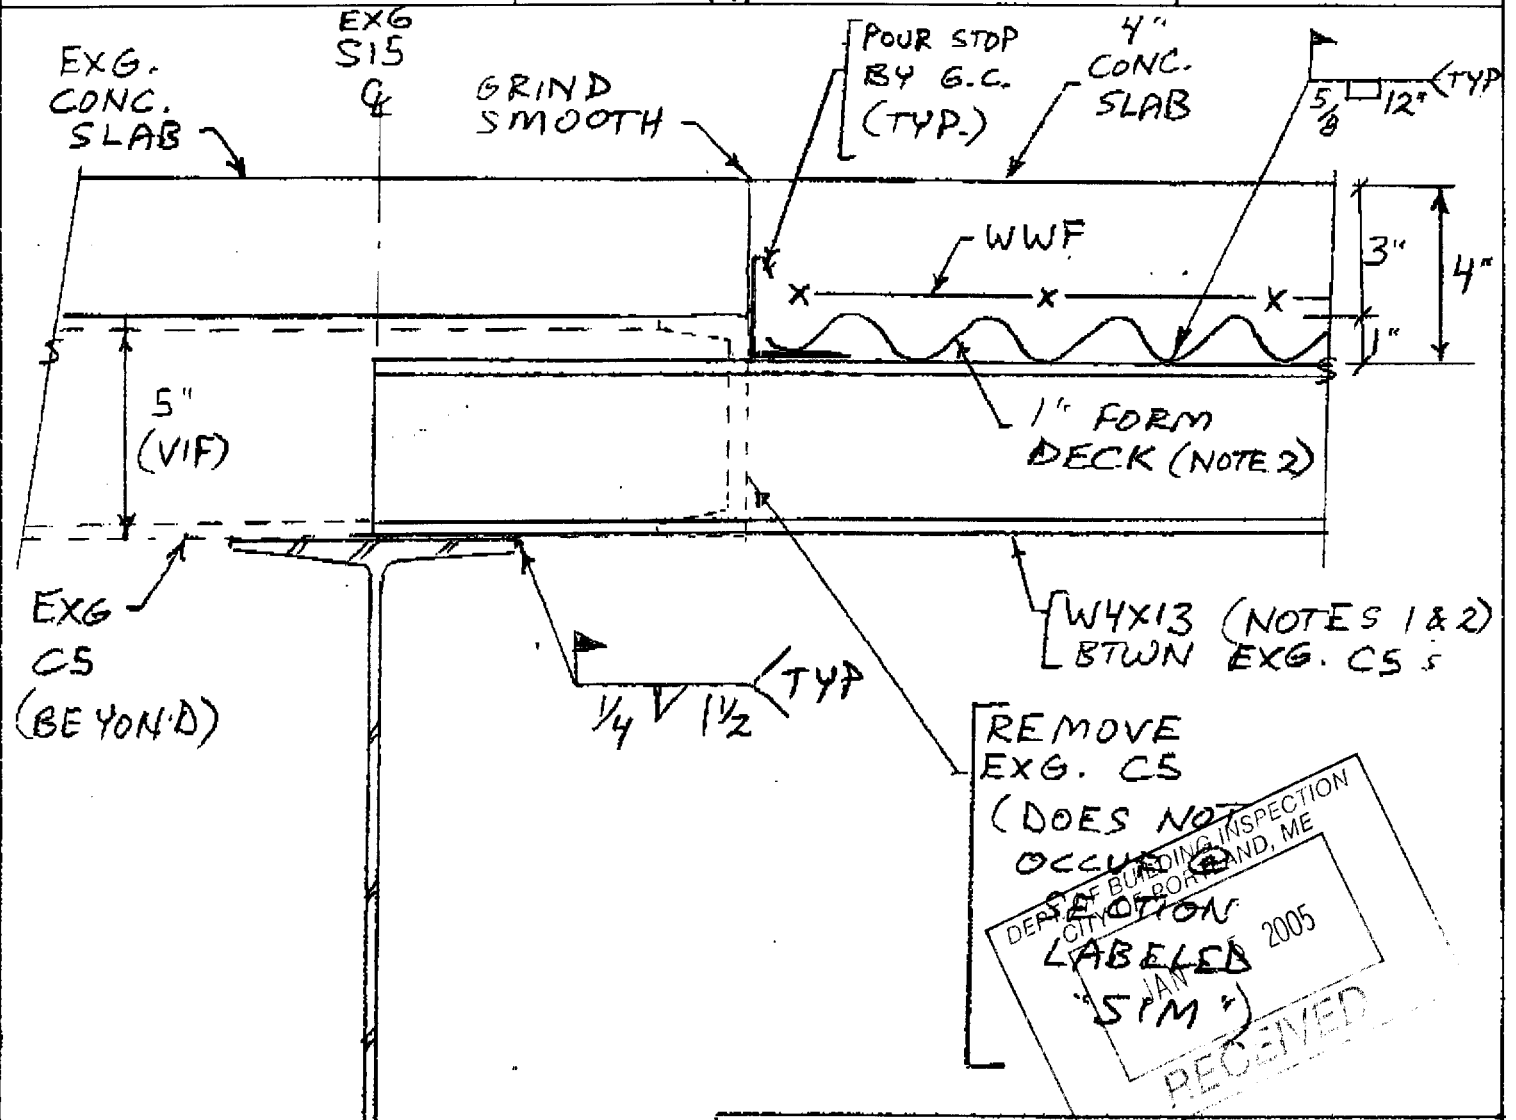 EXG.
CONC.
SLAB
EXG
S15
℄
GRIND
SMOOTH
POUR STOP
BY G.C.
(TYP.)
4"
CONC.
SLAB
5/8 12" TYP
WWF
X X X
3"
4"
1"
5"
(VIF)
1" FORM
DECK (NOTE 2)
EXG
C5
(BEYOND)
W4X13 (NOTES 1 & 2)
BTWN EXG. C5 s
1/4 1 1/2 TYP
REMOVE
EXG. C5
(DOES NOT
OCCUR @
SECTION
LABELED
"SIM")
DEPT. OF BUILDING INSPECTION
CITY OF PORTLAND, ME
JAN 2005
RECEIVED